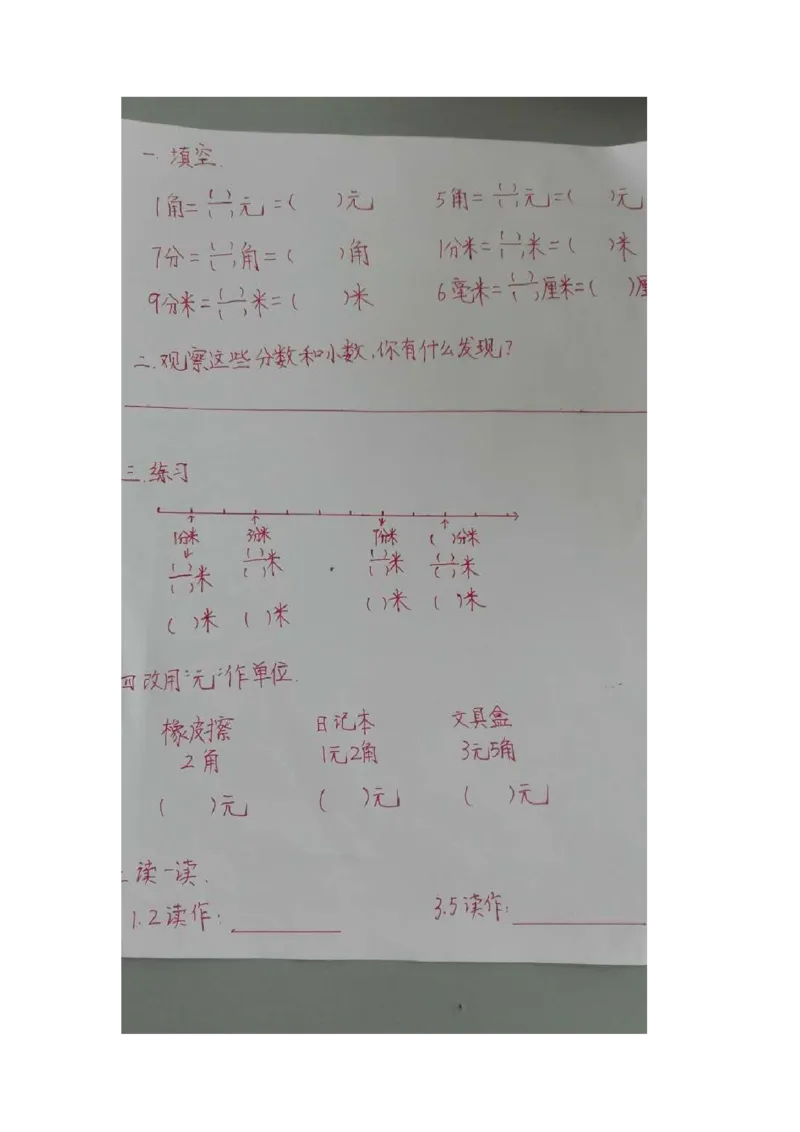 一.填空.
1角=( )/( )元=( )元 5角=( )/( )元=( )元
7分=( )/( )角=( )角 1分米=( )/( )米=( )米
9分米=( )/( )米=( )米 6毫米=( )/( )厘米=( )厘
二.观察这些分数和小数,你有什么发现?
三.练习
1分米 3分米 7分米 ( )分米
( )/( )米 ( )/( )米 ( )/( )米 ( )/( )米
( )米 ( )米 ( )米 ( )米
四.改用"元"作单位.
橡皮擦 日记本 文具盒
2角 1元2角 3元5角
( )元 ( )元 ( )元
读一读.
1.2读作: 3.5读作: